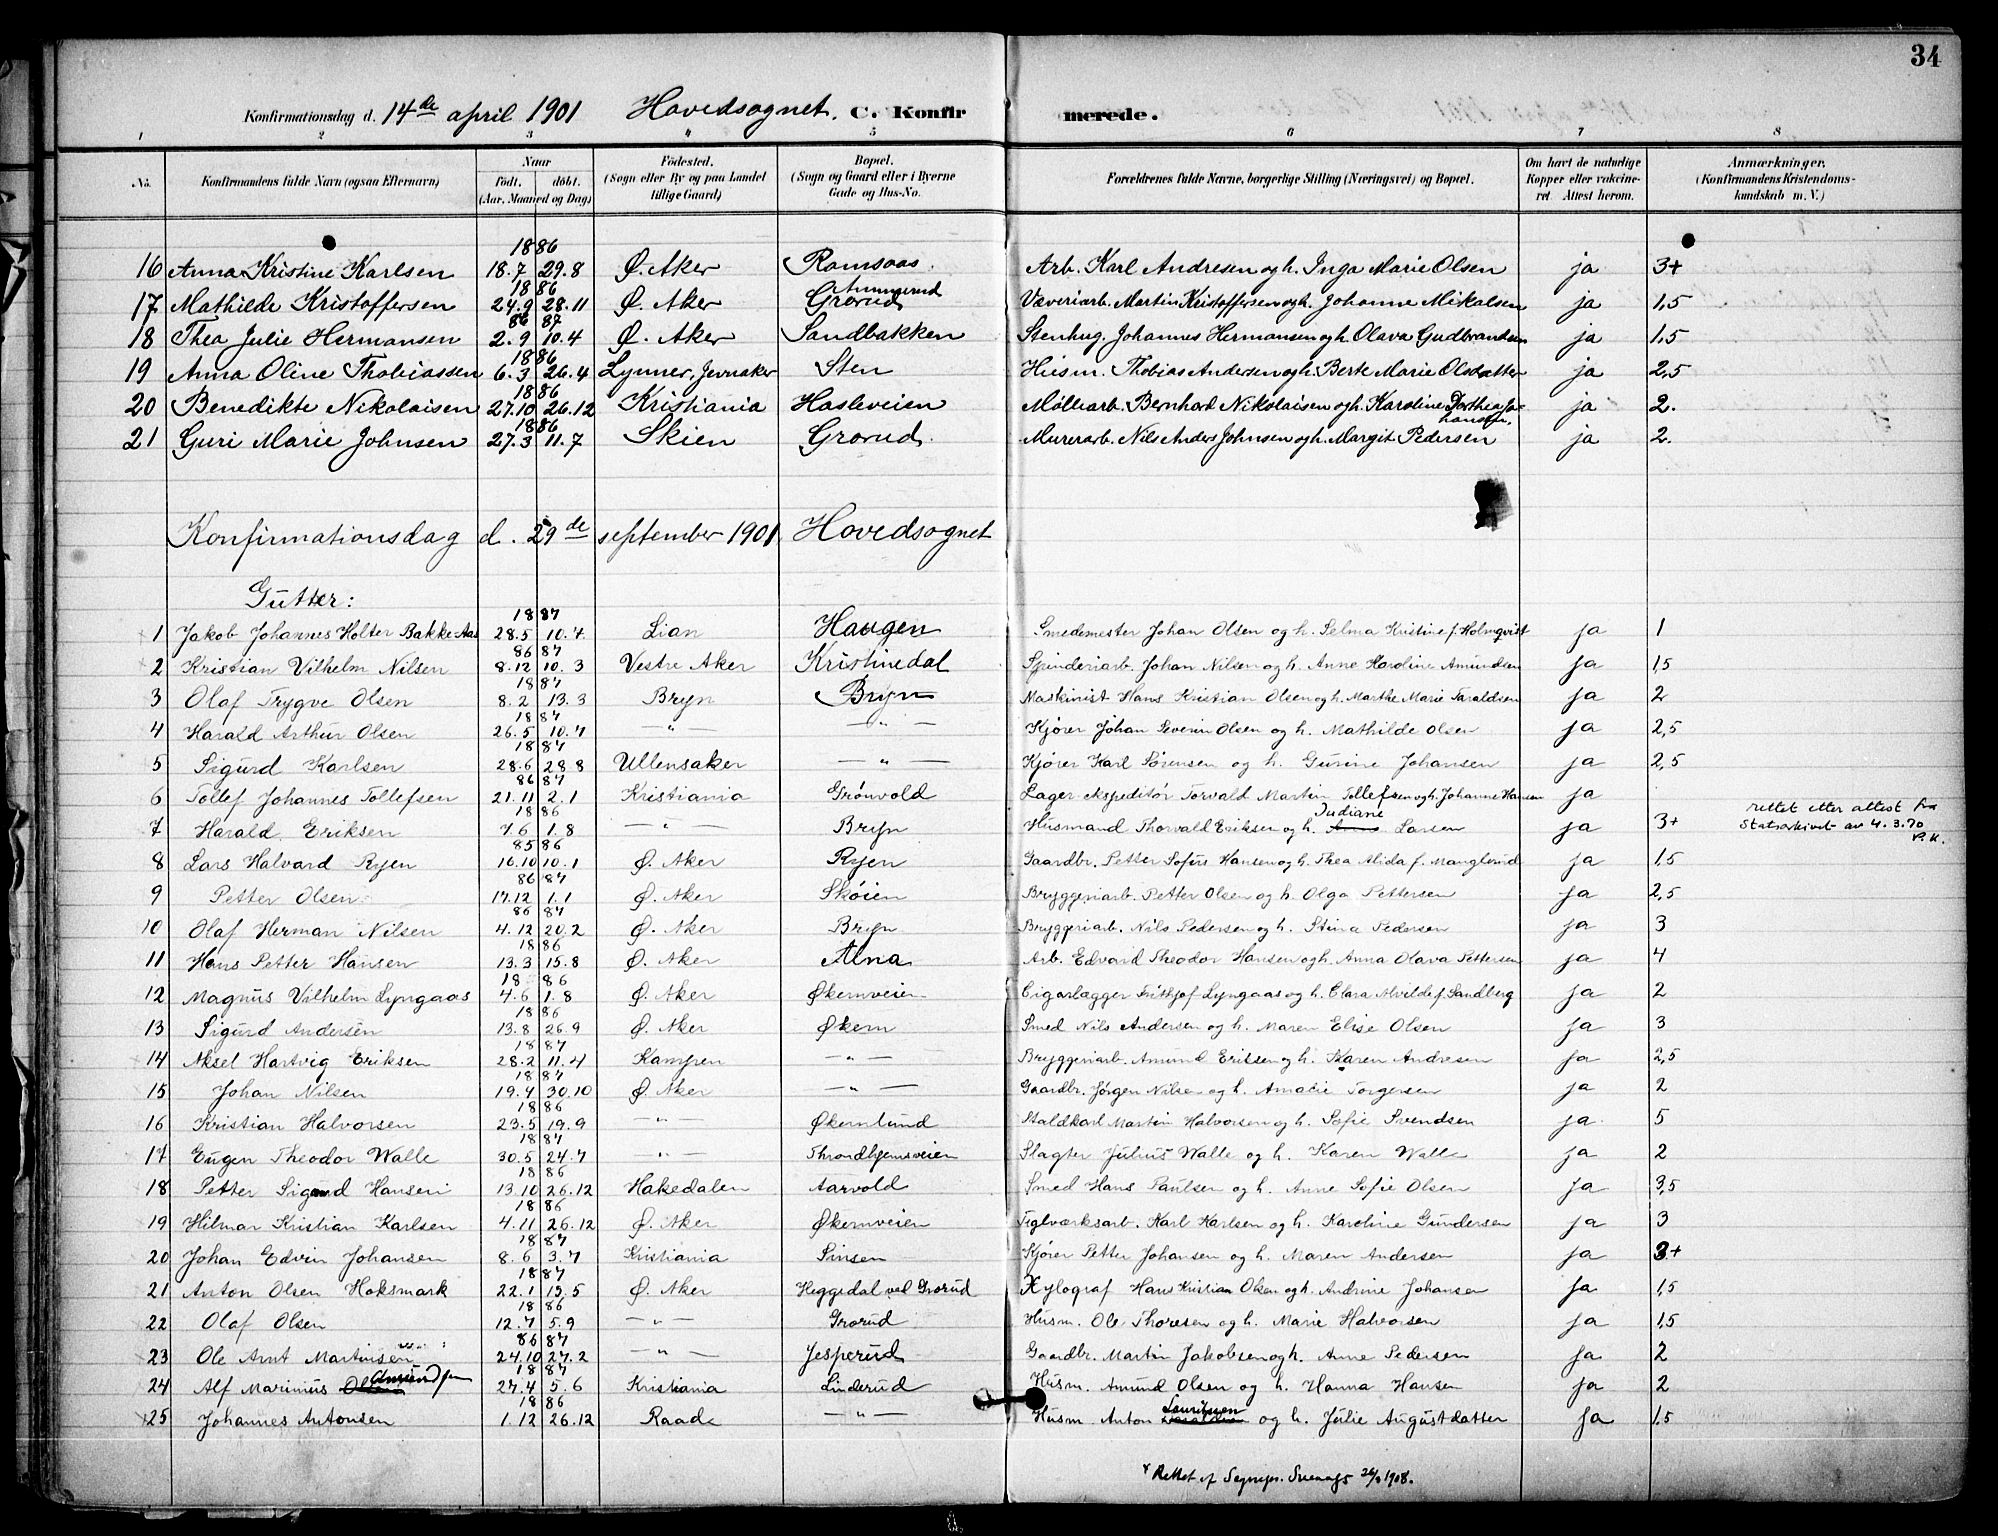 34
Konfirmationsdag d. 14de april 1901 Hovedsognet. C. Konfir merede.
1 2 3 4 5 6 7 8
No. Konfirmandens fulde Navn (ogsaa Efternavn) Naar Födt. döbt. (Aar, Maaned og Dag) Födested. (Sogn eller By og paa Landet tillige Gaard) Bopæl. (Sogn og Gaard eller i Byerne Gade og Hus-No. Forældrenes fulde Navne, borgerlige Stilling (Næringsvei) og Bopæl. Om havt de naturlige Kopper eller vakcineret. Attest herom. Anmærkninger, (Konfirmandens Kristendomskundskab m. V.)
18 86
16 Anna Kristine Karlsen 18.7 29.8 Ø. Aker Ramsaas. Arb. Karl Andresen og h. Inga Marie Olsen ja 3+
18 86 Ammerud
17 Mathilde Kristoffersen 24.9 28.11 Ø. Aker Grorud Væveriarb. Martin Kristoffersen og h. Johanne Mikalsen ja 1,5
86 87
18 Thea Julie Hermansen 2.9 10.4 Ø. Aker Sandbakken Stenhug. Johannes Hermansen og h. Olava Gudbrandsen ja 1,5
18 86
19 Anna Oline Thobiassen 6.3 26.4 Lynner, Jevnaker Sten Husm. Thobias Andersen og h. Berte Marie Olsdatter ja 2,5
18 86
20 Benedikte Nikolaisen 27.10 26.12 Kristiania Hasleveien Mølliarb. Bernhard Nikolaisen og h. Karoline Dorthea Johansen. ja 2.
18 86
21 Guri Marie Johnsen 27.3 11.7 Skien Grorud. Murerarb. Nils Anders Johnsen og h. Margit Pedersen ja 2.
Konfirmationsdag d. 29de september 1901 Hovedsognet
Gutter:
18 87
1 Jakob Johannes Holter Bakke-Aas 28.5 10.7 Lian Haugen Smedemester Johan Olsen og h. Selma Kristine f. Holmqvist ja 1
86 87
2 Kristian Vilhelm Nilsen 8.12 10.3 Vestre Aker Kristinedal Spinderiarb. Johan Nilsen og h. Anne Karoline Amundsen ja 1,5
18 87
3 Olaf Trygve Olsen 8.2 13.3 Bryn Bryn Maskinist Hans Kristian Olsen og h. Marthe Marie Taraldsen ja 2
18 87
4 Harald Arthur Olsen 26.5 10.7 — " — — " — Kjører Johan Severin Olsen og h. Mathilde Olsen ja 2,5
18 87
5 Sigurd Karlsen 28.6 28.8 Ullensaker — " — Kjører Karl Sørensen og h. Gurine Johansen ja 2,5
86 87
6 Tollef Johannes Tollefsen 21.11 2.1 Kristiania Grønvold Lager ekspeditør Torvald Martin Tollefsen og h. Johanne Hansen ja
18 86 Judiane rettet etter attest fra
7 Harald Eriksen 7.6 1.8 — " — Bryn Husmand Thorvald Eriksen og h. Larsen ja 3+ Statsarkivet av 4.3.70 P.K.
85 86
8 Lars Halvard Ryen 16.10 10.1 Ø. Aker Ryen Gaardbr. Petter Sofus Hansen og h. Thea Alida f. Manglerud ja 1,5
86 87
9 Petter Olsen 17.12 1.1 Ø. Aker Skøien Bryggeriarb. Petter Olsen og h. Olga Pettersen ja 2,5
86 87
10 Olaf Herman Nilsen 4.12 20.2 Ø. Aker Bryn Bryggeriarb. Nils Pedersen og h. Stina Pedersen ja 3
18 86
11 Hans Petter Hansen 13.3 15.8 Ø. Aker Alna Arb. Edvard Theodor Hansen og h. Anna Olava Pettersen ja 4
18 86
12 Magnus Vilhelm Lyngaas 4.6 1.8 Ø. Aker Økernveien Cigarlægger Frithjof Lyngaas og h. Clara Alvilde f. Sandberg ja 2
18 86
13 Sigurd Andersen 13.8 26.9 Ø. Aker Økern Smed Nils Andersen og h. Maren Elise Olsen ja 3
18 87
14 Aksel Hartvig Eriksen 28.2 11.4 Kampen — " — Bryggeriarb. Amund Eriksen og h. Karen Andresen ja 2,5
18 87
15 Johan Nilsen 19.4 30.10 Ø. Aker — " — Gaardbr. Jørgen Nilsen og h. Amalie Torgersen ja 2
18 86
16 Kristian Halvorsen 23.5 19.9 — " — Økernlund Staldkarl Martin Halvorsen og h. Sofie Svendsen ja 5
18 87
17 Eugen Theodor Walle 30.5 24.7 — " — Throndhjemsveien Slagter Julius Walle og h. Karen Walle ja 2
18 86
18 Petter Sigurd Hansen 13.10 26.12 Hakedalen Aarvold Smed Hans Paulsen og h. Anne Sofie Olsen ja 3,5
18 86
19 Hilmar Kristian Karlsen 4.11 26.12 Ø. Aker Økernveien Teglværksarb. Karl Karlsen og h. Karoline Gundersen ja 3
18 87
20 Johan Edvin Johansen 8.6 3.7 Kristiania Sinsen Kjører Petter Johansen og h. Maren Andersen ja 3+
18 87
21 Anton Olsen Hoksmark 22.1 15.5 Ø. Aker Heggedal ved Grorud Xylograf Hans Kristian Olsen og h. Andrine Johansen ja 1,5
18 86
22 Olaf Olsen 12.7 5.9 — " — Grorud Husm. Ole Thoresen og h. Marie Halvorsen ja 1,5
86 87
23 Ole Arnt Martinsen 24.10 27.2 — " — Jesperud Gaardbr. Martin Jakobsen og h. Anne Pedersen ja 2
18 87 Amundsen
24 Alf Marinius Olsen 27.4 5.6 Kristiania Linderud Husm. Amund Olsen og h. Hanna Hansen ja 2
18 86 Lauritsen
25 Johannes Antonsen 1.12 26.12 Raade — " — Husm Anton og h. Julie Augustdatter ja 1,5
Rettet af Sognepr. 26/3 1908.